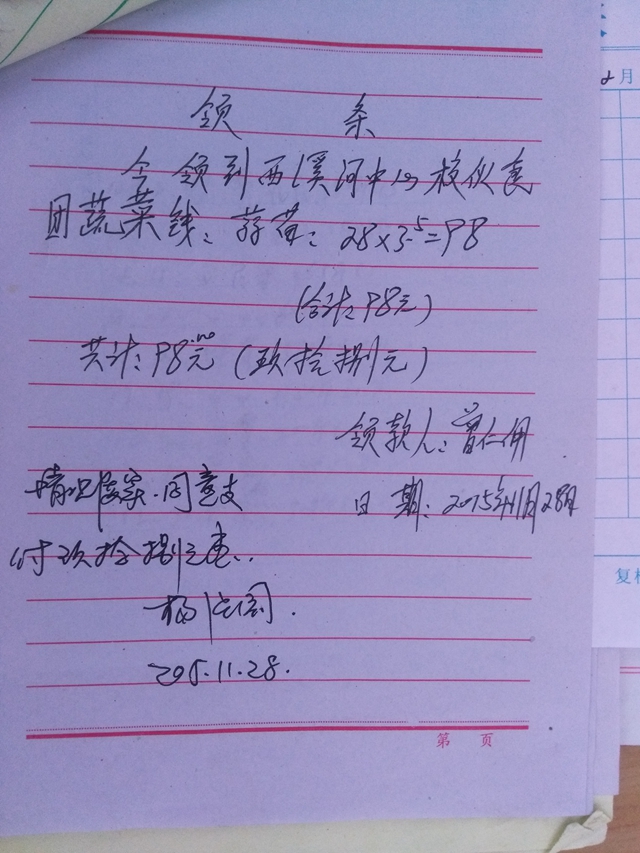 领 条
今领到西溪河中心校伙食
团蔬菜钱：蒜苗：28×3.5=98
(合计：98元)
共计：98.00元(玖拾捌元)
领款人：曾仁俐
日 期：2015年11月28日
情况属实.同意支
付玖拾捌元壹..
杨
2015.11.28.
第 页
月
复核